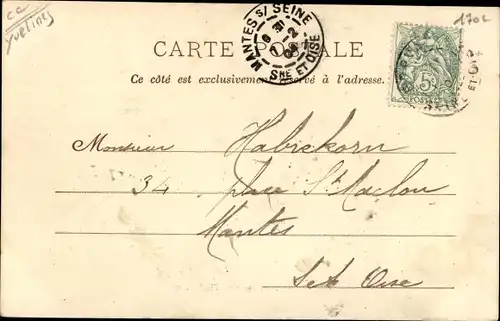 cc
Yvelines
170c
MANTES S/ SEINE
SNE ET OISE
CARTE POSTALE
5c
POSTES
Ce côté est exclusivement réservé à l'adresse.
Monsieur Habrekorn
34 place St Maclou
Mantes
S et Oise